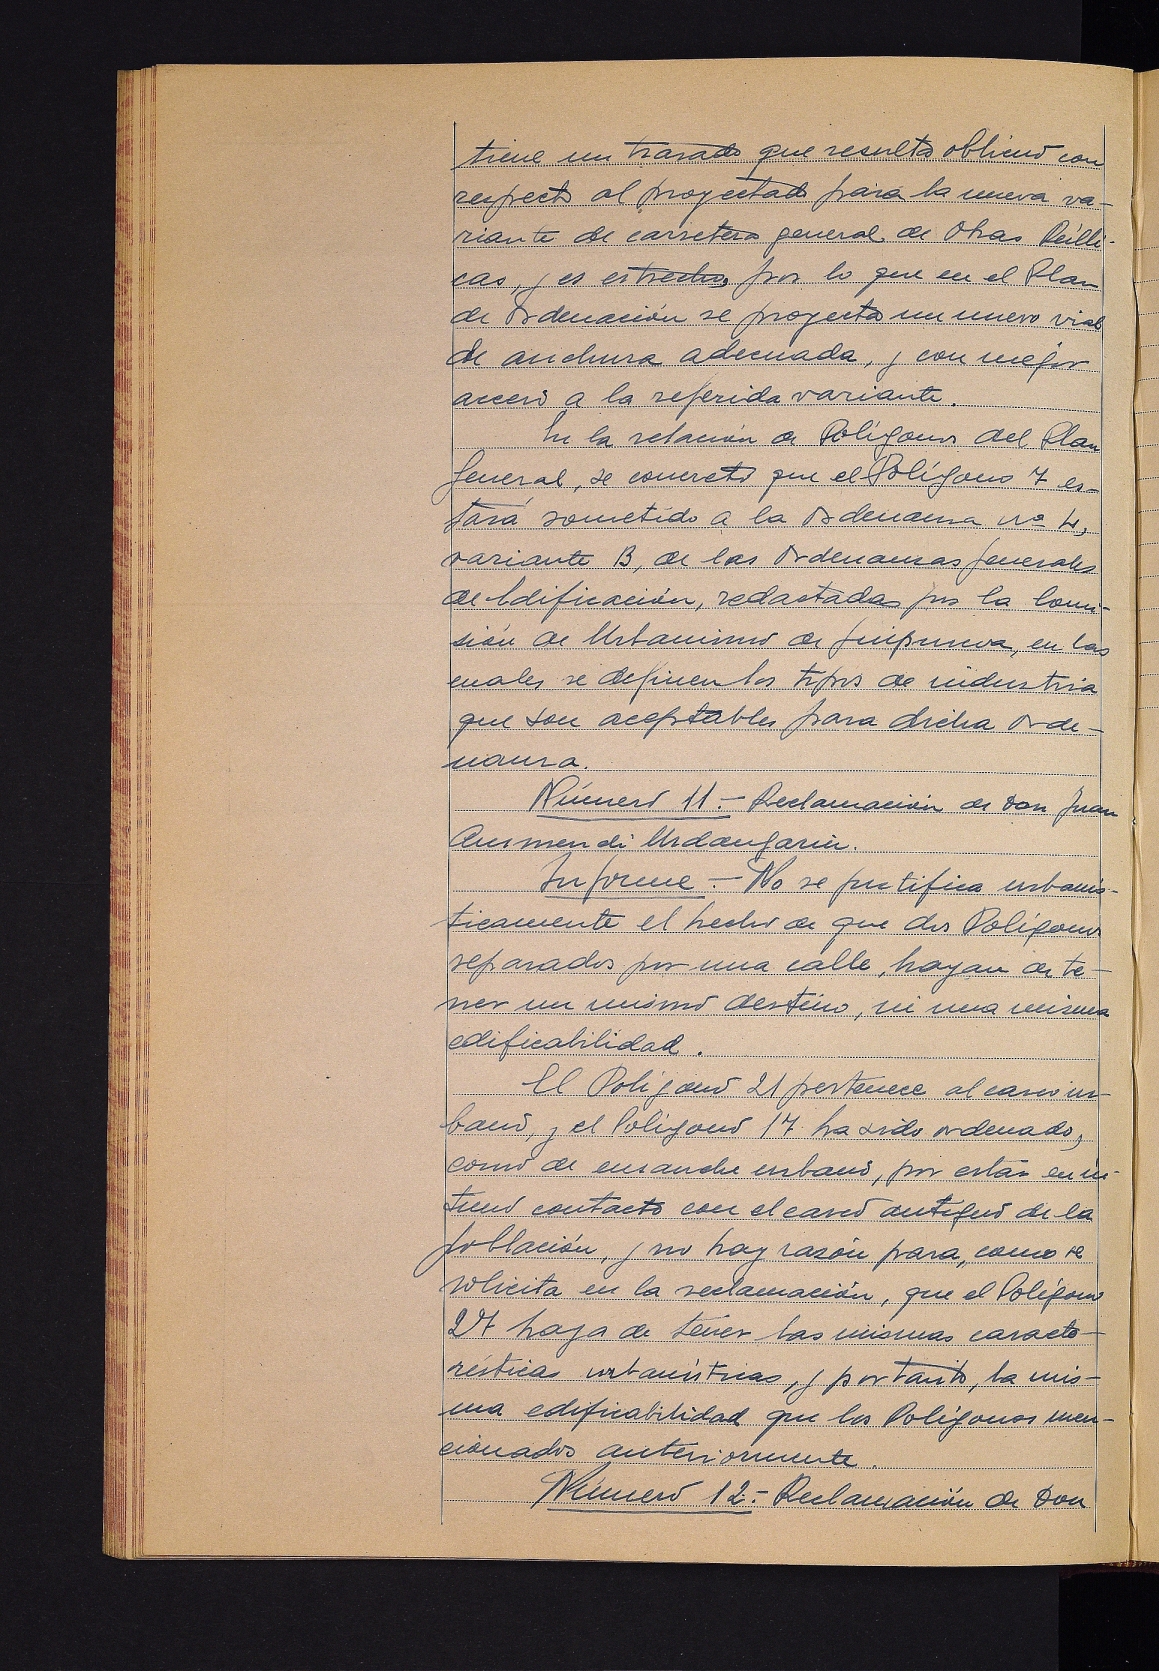 tiene un trazado que resulta oblicuo con
respecto al proyectado para la nueva va-
riante de carretera general de Obras Públi-
cas, y es estrecho, por lo que en el Plan
de Ordenación se proyecta un nuevo vial
de anchura adecuada, y con mejor
acceso a la referida variante.
En la relación de Polígonos del Plan
General, se concreta que el Polígono 7 es-
tará sometido a la Ordenanza nº 4,
variante B, de las Ordenanzas Generales
de Edificación, redactadas por la Comi-
sión de Urbanismo de Guipuzcoa, en las
cuales se definen los tipos de industria
que son aceptables para dicha Orde-
nanza.
Número 11.- Reclamación de Don Juan
Aurmendi Urdangarin.
Informe.- No se justifica urbanís-
ticamente el hecho de que dos Polígonos
separados por una calle, hayan de te-
ner un mismo destino, ni una misma
edificabilidad.
El Polígono 21 pertenece al casco ur-
bano, y el Polígono 17 ha sido ordenado,
como de ensanche urbano, por estar en ín-
timo contacto con el casco antiguo de la
población, y no hay razón para, como se
solicita en la reclamación, que el Polígono
27 haya de tener las mismas caracte-
rísticas urbanísticas, y por tanto, la mis-
ma edificabilidad que los Polígonos men-
cionados anteriormente.
Número 12.- Reclamación de Don